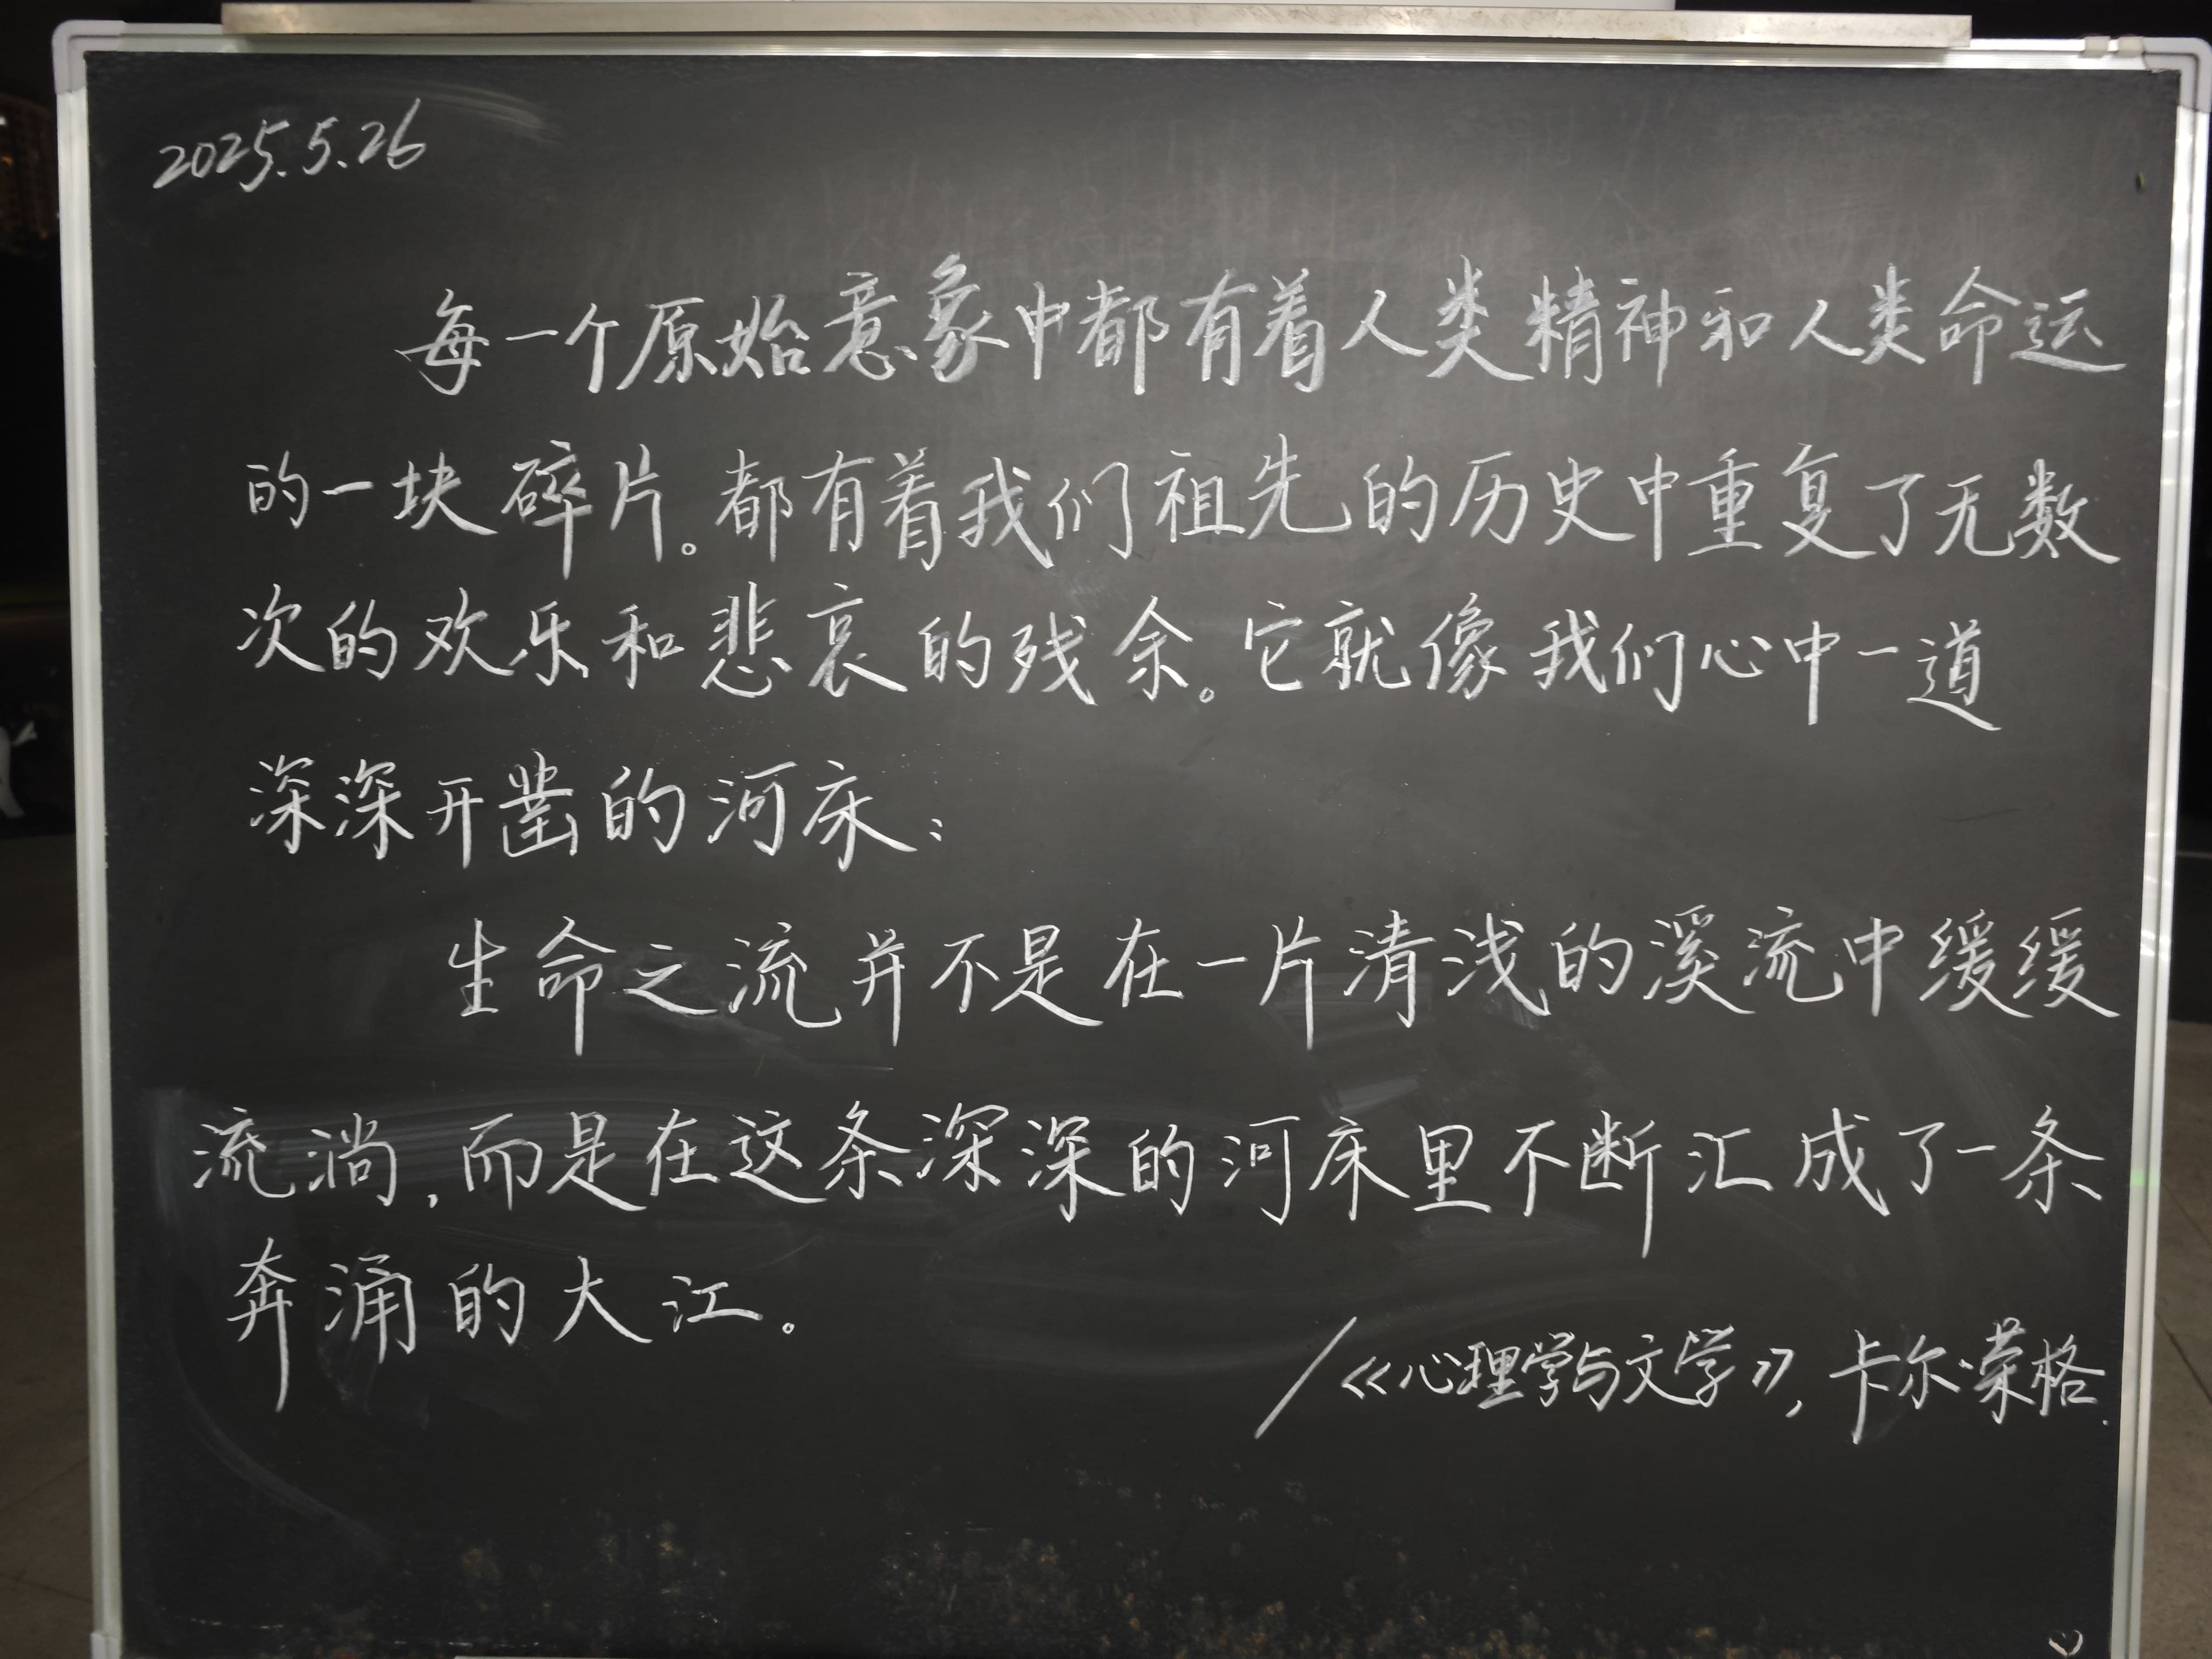 2025.5.26
每一个原始意象中都有着人类精神和人类命运
的一块碎片。都有着我们祖先的历史中重复了无数
次的欢乐和悲哀的残余。它就像我们心中一道
深深开凿的河床：
生命之流并不是在一片清浅的溪流中缓缓
流淌，而是在这条深深的河床里不断汇成了一条
奔涌的大江。
/《心理学与文学》，卡尔·荣格.